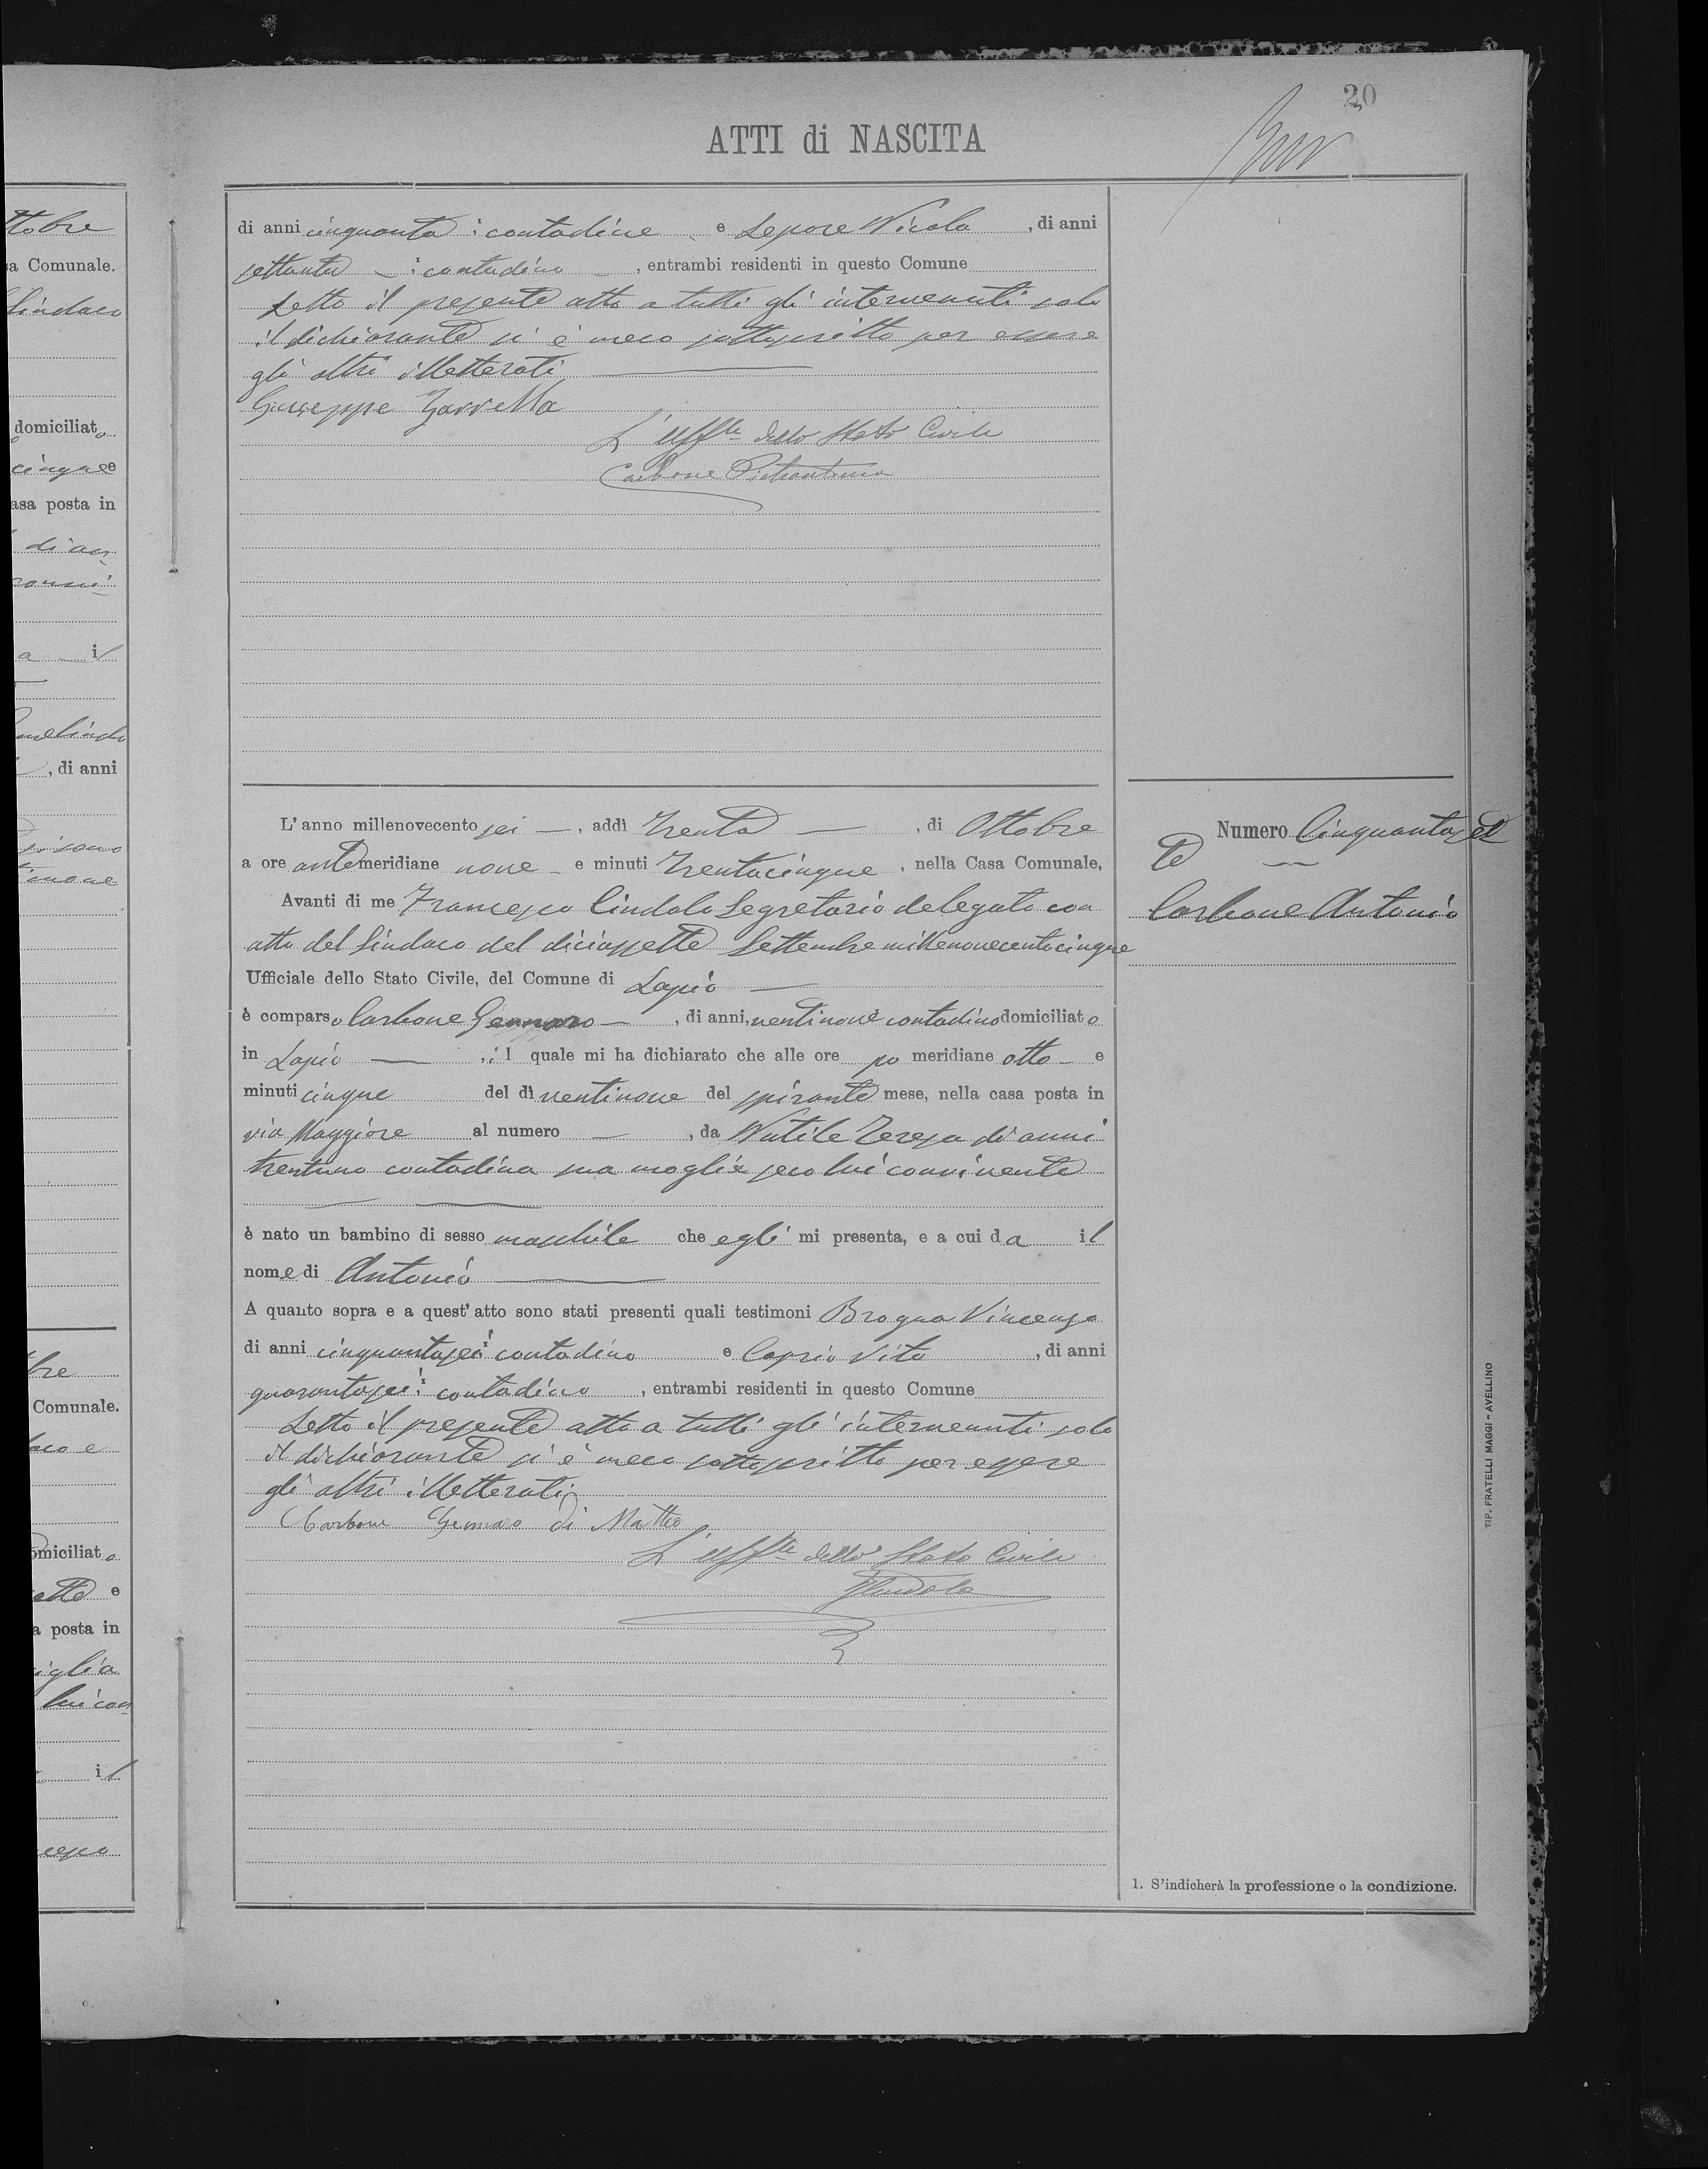 20
ATTI di NASCITA
di anni cinquanta : contadine e Lepore Nicola , di anni
settanta : contadino , entrambi residenti in questo Comune
Letto il presente atto a tutti gli intervenuti solo
il dichiarante si è meco sottoscritto per essere
gli altri illetterati
Giuseppe Zarrella
L'Uffle dello Stato Civile
Carbone
L'anno millenovecento sei , addì trenta , di Ottobre
a ore antemeridiane nove e minuti trentacinque , nella Casa Comunale,
Avanti di me Francesco Cindolo Segretario delegato con
atto del Sindaco del diciassette Settembre millenovecentocinque
Ufficiale dello Stato Civile, del Comune di Lapio
è comparso Carbone Gennaro , di anni, ventinove contadino domiciliato
in Lapio , il quale mi ha dichiarato che alle ore po meridiane otto e
minuti cinque del dì ventinove del spirante mese, nella casa posta in
via Maggiore al numero , da Nutile Teresa di anni
trentuno contadina sua moglie seco lui convivente
è nato un bambino di sesso maschile che egli mi presenta, e a cui da il
nome di Antonio
A quanto sopra e a quest'atto sono stati presenti quali testimoni Brogna Vincenzo
di anni cinquantasei contadino e Caprio Vito , di anni
quarantasei contadino , entrambi residenti in questo Comune
Letto il presente atto a tutti gli intervenuti solo
il dichiarante si è meco sottoscritto per essere
gli altri illetterati
Carbone Gennaro di Matteo
L'Uffle dello Stato Civile
FCindolo
Numero Cinquantaset
te
Carbone Antonio
1. S'indicherà la professione o la condizione.
TIP. FRATELLI MAGGI - AVELLINO
ttobre
sa Comunale.
Sindaco
domiciliato
cinque e
asa posta in
di an
il
, di anni
Comunale.
omiciliato
ette e
a posta in
iglia
lui con
il